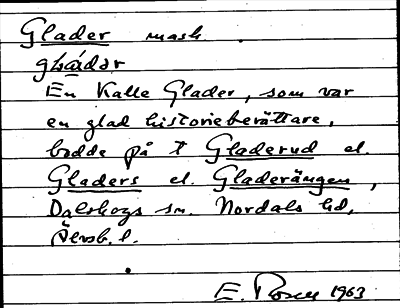 Glader mask.
gládər
En Kalle Glader, som var
en glad historieberättare,
bodde på t Gladerud el.
Gladers el. Gladerängen,
Dalskogs sn. Nordals hd,
Älvsb. l.
E. Rosen 1963